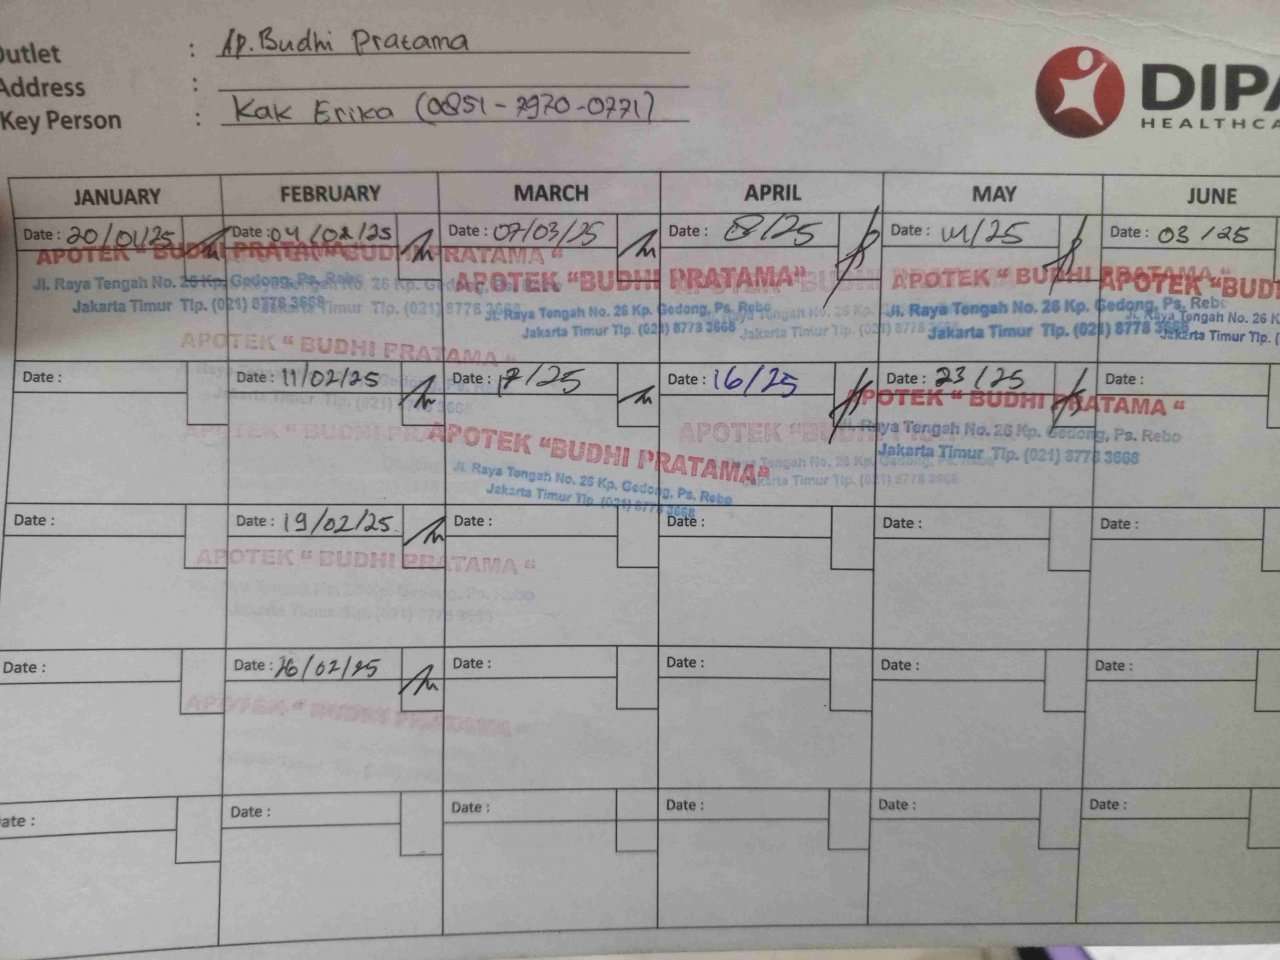 Outlet : Ap. Budhi Pratama
Address :
Key Person : Kak Erika (0851-7970-0771)
DIPA
HEALTHCA
JANUARY FEBRUARY MARCH APRIL MAY JUNE
Date : 20/01/25 Date : 04/02/25 Date : 07/03/25 Date : 8/25 Date : /25 Date : 03/25
APOTEK " BUDHI PRATAMA "
Jl. Raya Tengah No. 26 Kp. Gedong, Ps. Rebo
Jakarta Timur Tlp. (021) 8778 3668
APOTEK "BUDHI PRATAMA"
Jl. Raya Tengah No. 26 Kp. Gedong, Ps. Rebo
Jakarta Timur Tlp. (021) 8778 3668
APOTEK " BUDHI PRATAMA
Jl. Raya Tengah No. 26 Kp. Gedong, Ps. Rebo
Jakarta Timur Tlp. (021) 8778 3668
APOTEK "BUD
Jl. Raya Tengah No. 26 K
Jakarta Timur Tlp. (
APOTEK " BUDHI PRATAMA "
Date : Date : 11/02/25 Date : 17/25 Date : 16/25 Date : 23/25 Date :
APOTEK "BUDHI PRATAMA"
Jl. Raya Tengah No. 26 Kp. Gedong, Ps. Rebo
Jakarta Timur Tlp. (021) 8778 3668
APOTEK " BUDHI PRATAMA "
Jl. Raya Tengah No. 26 Kp. Gedong, Ps. Rebo
Jakarta Timur Tlp. (021) 8778 3668
Date : Date : 19/02/25 Date : Date : Date : Date :
APOTEK " BUDHI PRATAMA "
Date : Date : 26/02/25 Date : Date : Date : Date :
APOTEK " BUDHI PRATAMA "
ate : Date : Date : Date : Date : Date :